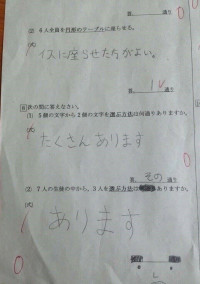 答　　　　通り
(2) 6人全員を円形のテーブルに座らせる。
(式)
イスに座らせた方がよい。
答　　　　通り
次の問に答えなさい。
(1) 5個の文字から2個の文字を選ぶ方法は何通りありますか。
(式)
たくさんあります
答　その　通り
(2) 7人の生徒の中から、3人を選ぶ方法は
(式)
あります